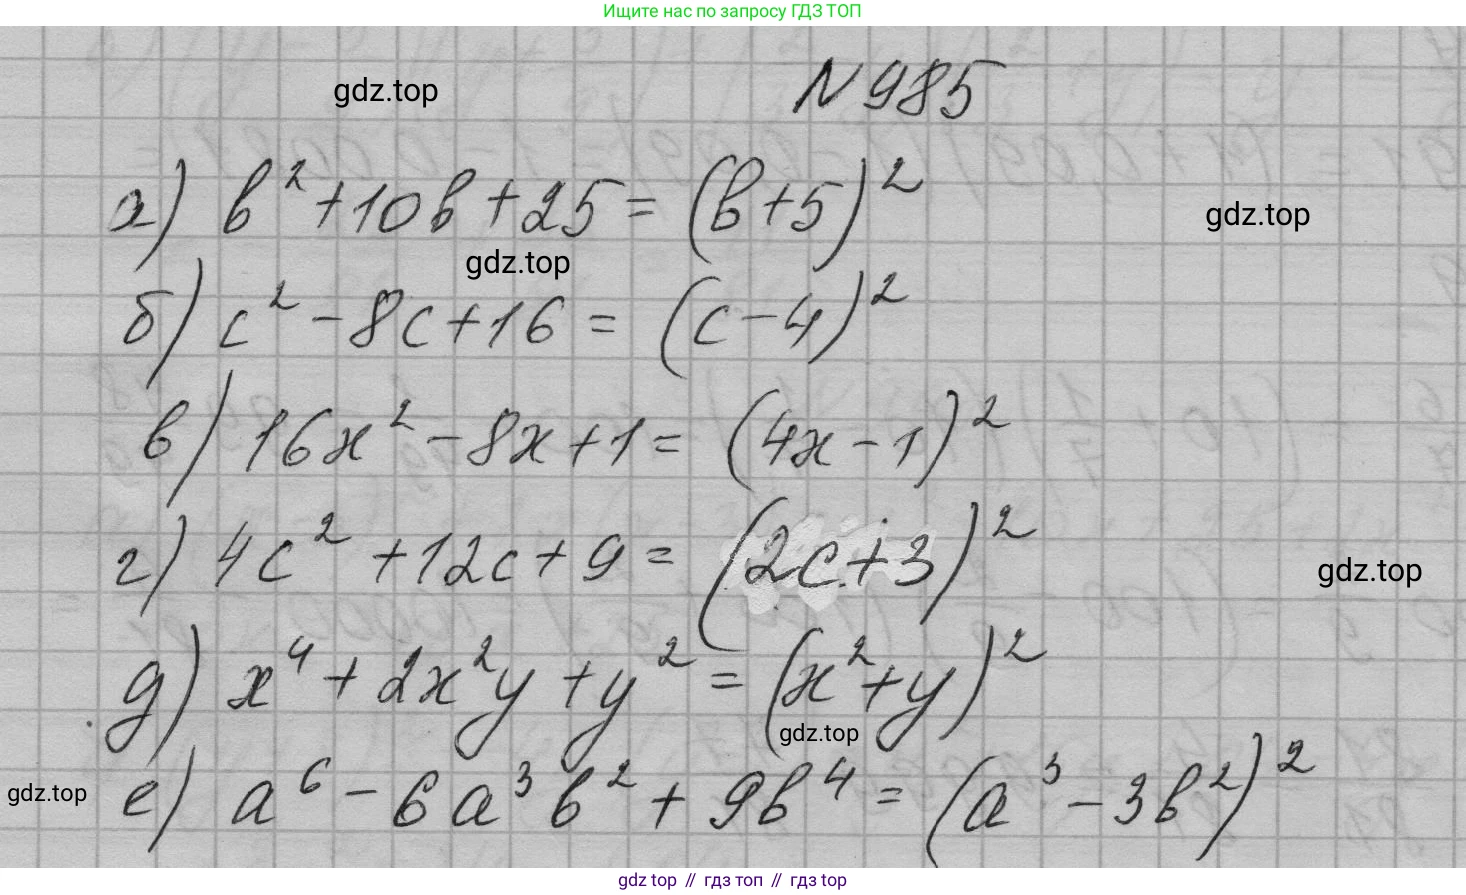 Ищите нас по запросу ГДЗ ТОП
gdz.top
N 985
а) b² + 10b + 25 = (b + 5)²
gdz.top
gdz.top
б) c² - 8c + 16 = (c - 4)²
в) 16x² - 8x + 1 = (4x - 1)²
г) 4c² + 12c + 9 = (2c + 3)²
gdz.top
д) x⁴ + 2x²y + y² = (x² + y)²
gdz.top
gdz.top
е) a⁶ - 6a³b² + 9b⁴ = (a³ - 3b²)²
gdz top // гдз топ // гдз top